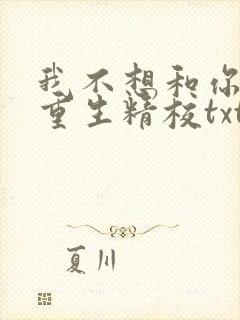 我不想和你
重生精校txt
夏川